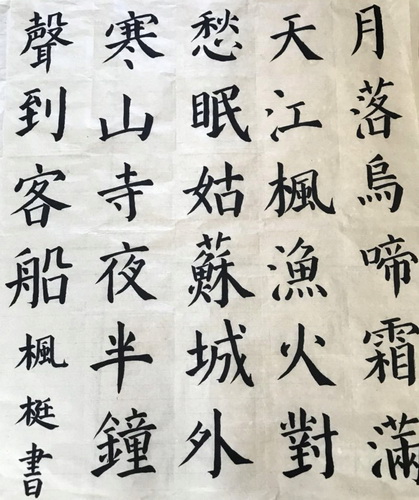 月落烏啼霜滿
天江楓漁火對
愁眠姑蘇城外
寒山寺夜半鐘
聲到客船楓梃書